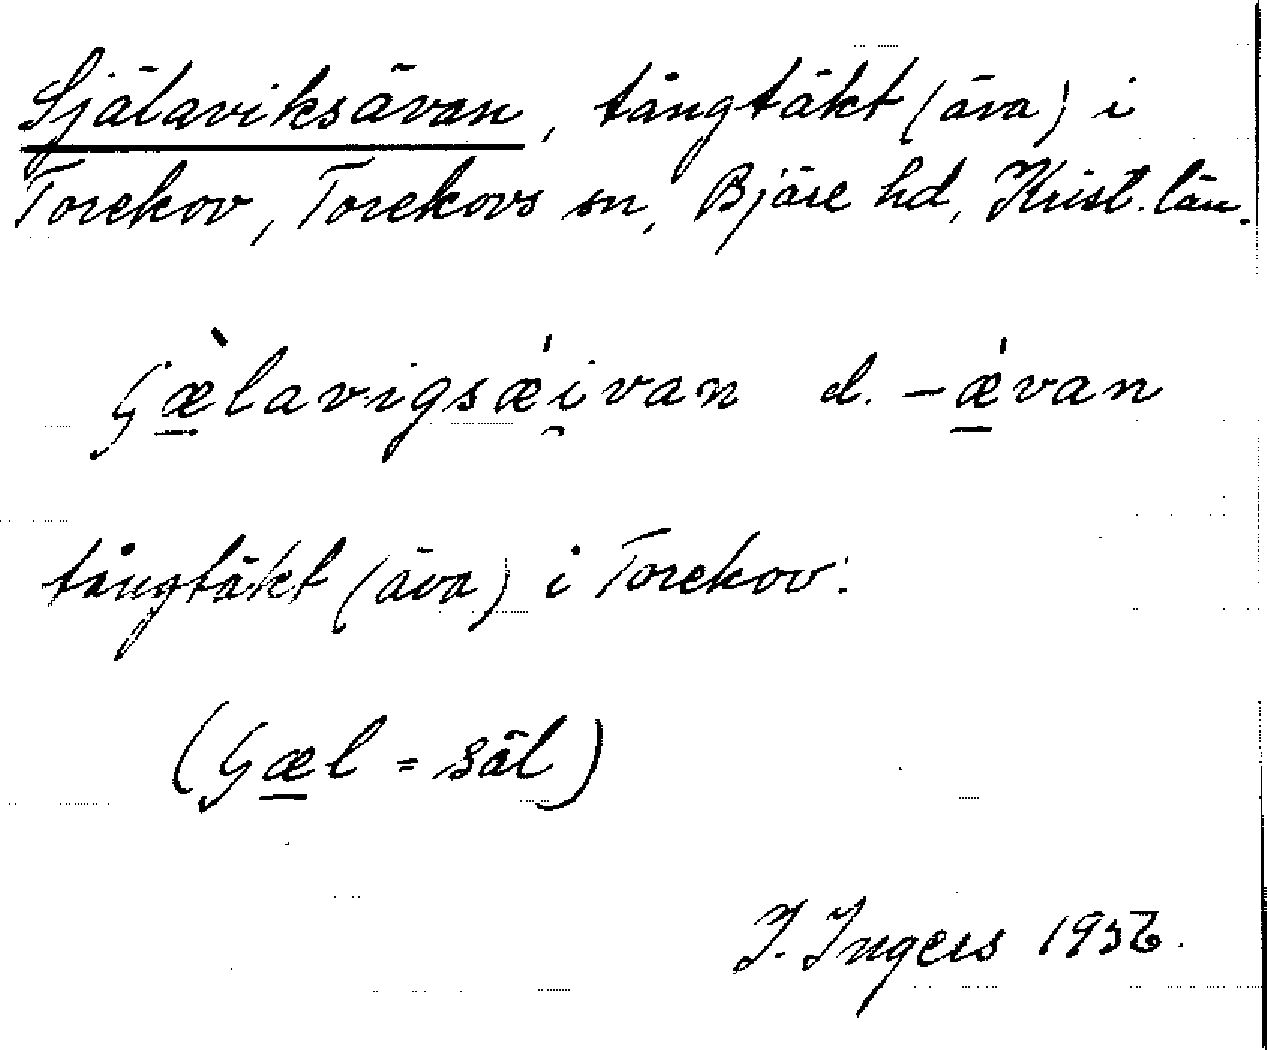 Själaviksävan, tångtäkt (äva) i
Torekov, Torekovs sn, Bjäre hd, Krist. län.
ʂæ̠̀lavigsǽi̯van el. -ǽ̠van
tångtäkt (äva) i Torekov.
(ʂæ̠l = säl)
I. Ingers 1956.